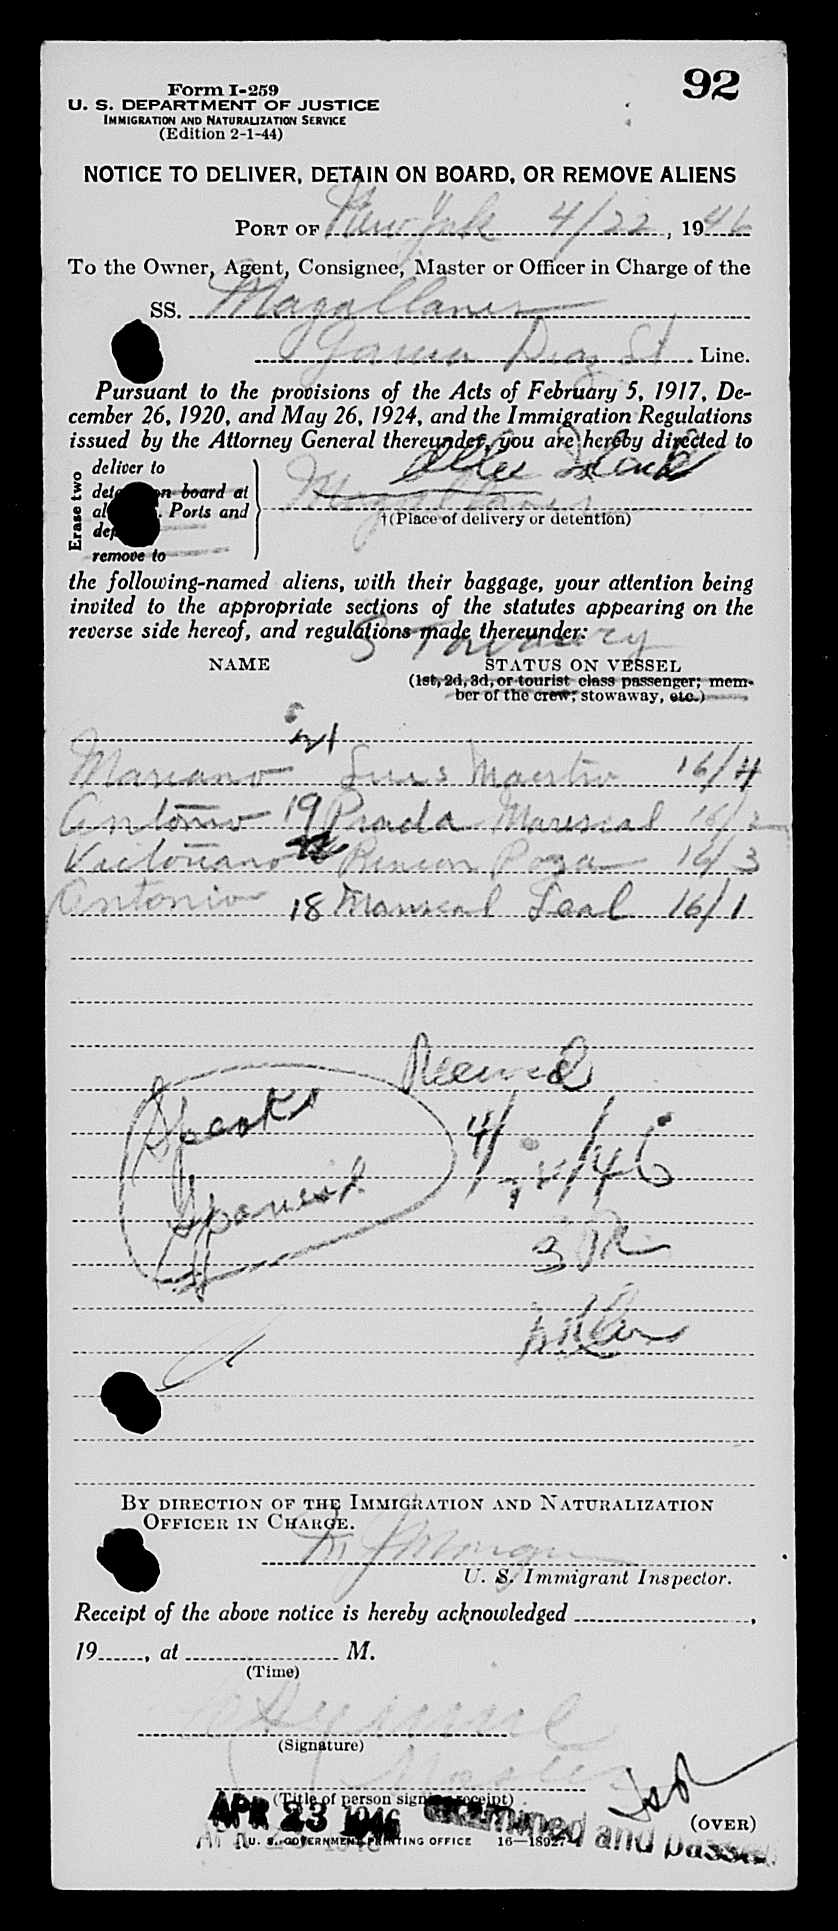 92
Form I-259
U. S. DEPARTMENT OF JUSTICE
IMMIGRATION AND NATURALIZATION SERVICE
(Edition 2-1-44)
NOTICE TO DELIVER, DETAIN ON BOARD, OR REMOVE ALIENS
PORT OF New York 4/22, 1946
To the Owner, Agent, Consignee, Master or Officer in Charge of the
SS. Magallanes
Garcia Diaz Line.
Pursuant to the provisions of the Acts of February 5, 1917, De-
cember 26, 1920, and May 26, 1924, and the Immigration Regulations
issued by the Attorney General thereunder, you are hereby directed to
Erase two
deliver to
on board at
Ports and
remove to
Ellis Island
Magallanes
†(Place of delivery or detention)
the following-named aliens, with their baggage, your attention being
invited to the appropriate sections of the statutes appearing on the
reverse side hereof, and regulations made thereunder:
NAME
STATUS ON VESSEL
(1st, 2d, 3d, or tourist class passenger; mem-
ber of the crew; stowaway, etc.)
Mariano Luis Maestro 16/4
Antonio 19 Prada Marescal 16/2
Victoriano Rincon Poza 16/3
Antonio 18 Mariscal Leal 16/1
Received
Speaks
Spanish
4/ /46
BY DIRECTION OF THE IMMIGRATION AND NATURALIZATION
OFFICER IN CHARGE.
Morgan
U. S. Immigrant Inspector.
Receipt of the above notice is hereby acknowledged ,
19 , at M.
(Time)
(Signature)
Master
(Title of person signing receipt)
APR 23 1946
examined and passed
(OVER)
U. S. GOVERNMENT PRINTING OFFICE 16—18927